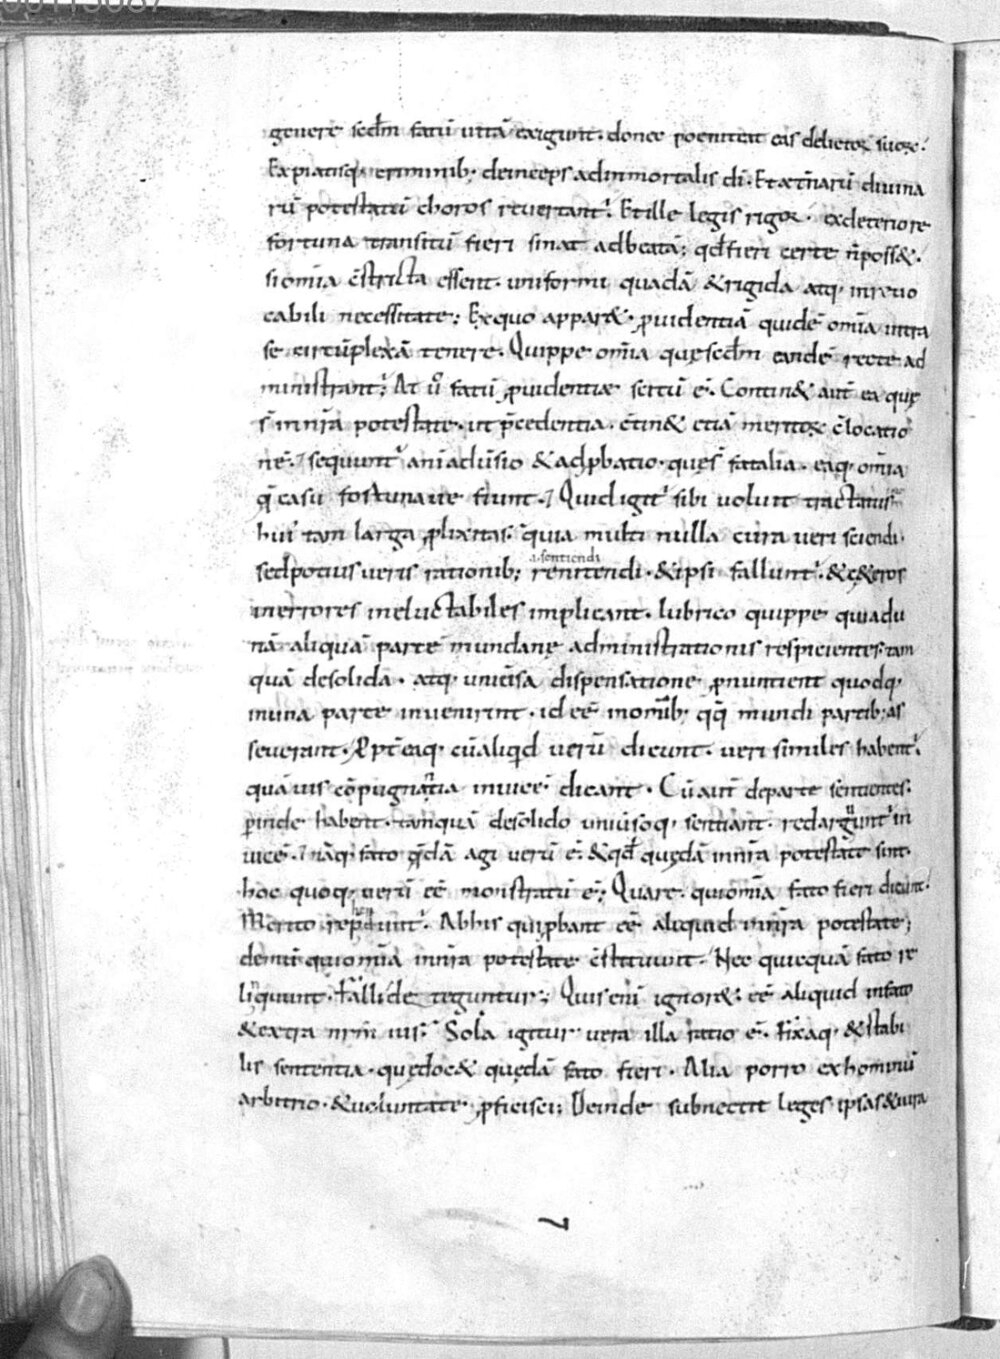 genere scđm fatū uitā exigunt. donec poeniteat eas delictoꝝ suoꝝ.
Expiatisq; criminib; deinceps adinmortalis dī. Et aet̄narū diuina
rū potestatū choros reuertant᷑. Et ille legis rigor. exdeteriore
fortuna transitū fieri sinat adbeatā; qđ fieri certe n̄ poss&.
si om̄ia c̄stricta essent. uniformi quadā & rigida atq; inreuo
cabili necessitate; Exquo appar&. ꝓuidentiā quidē om̄ia intra
se circūplexā tenere. Quippe om̄ia quę scđm eandē recte ad
ministrant᷑; At ū fatū ꝓuidentiae sectū ē. Contin& aut̄ ea quę
s̄ in nr̄a potestate. ut p̄cedentia. c̄tin& etiā meritoꝝ c̄locatio
nē. sequunt᷑ aniaduersio & adꝓbatio. quę s̄ fatalia. eaq; om̄ia
q̄ casu fortunaue fiunt. Quid igit᷑ sibi uoluit tractatus
hui᷒ tam larga ꝓlixitas. quia multi nulla cura ueri sciendi.
sed potius ueris rationib; renitendi. & ipsi fallunt᷑. & c&eros
i. sentiendi
in errores ineluctabiles implicant. lubrico quippe quia du
nā aliquā partē mundanę administrationis respicientes. tam
quā desolida. atq; uniūsa dispensatione ꝓnuntient quodq;
inuna parte inuenirint. id eē inom̄ib; mundi partib; as
seuerant. &pt̄ eaq; cū aliqđ uerū dicunt. ueri similes habent᷑.
quāuis cōpugnantia inuicē dicant. Cū aut̄ departe sentientes.
ꝑinde habent. tanquā desolido uniūsoq; sentiant. redarguunt᷑ in
uicē. nāq; fato q̄dā agi uerū ē. & qđ quędā innr̄a potestate sint.
hoc quoq; uerū eē monstratū ē; Quare. qui om̄ia fato fieri dicunt.
Merito rephendunt᷑. Abhis qui ꝓbant eē aliquid innr̄a potestate;
demū qui om̄ia innr̄a potestate c̄stituunt. Nec quicquā fato re
linquunt. Falli deteguntur; Quis enī ignor&. eē aliquid infato
& extra nr̄m ius. Sola igitur uera illa ratio ē. Fixaq; & stabi
lis sententia. quę doc& quędā fato fieri. Alia porro exhominū
arbitrio. & uoluntate. ꝓficisci; Deinde subnectit leges ipsas & iura